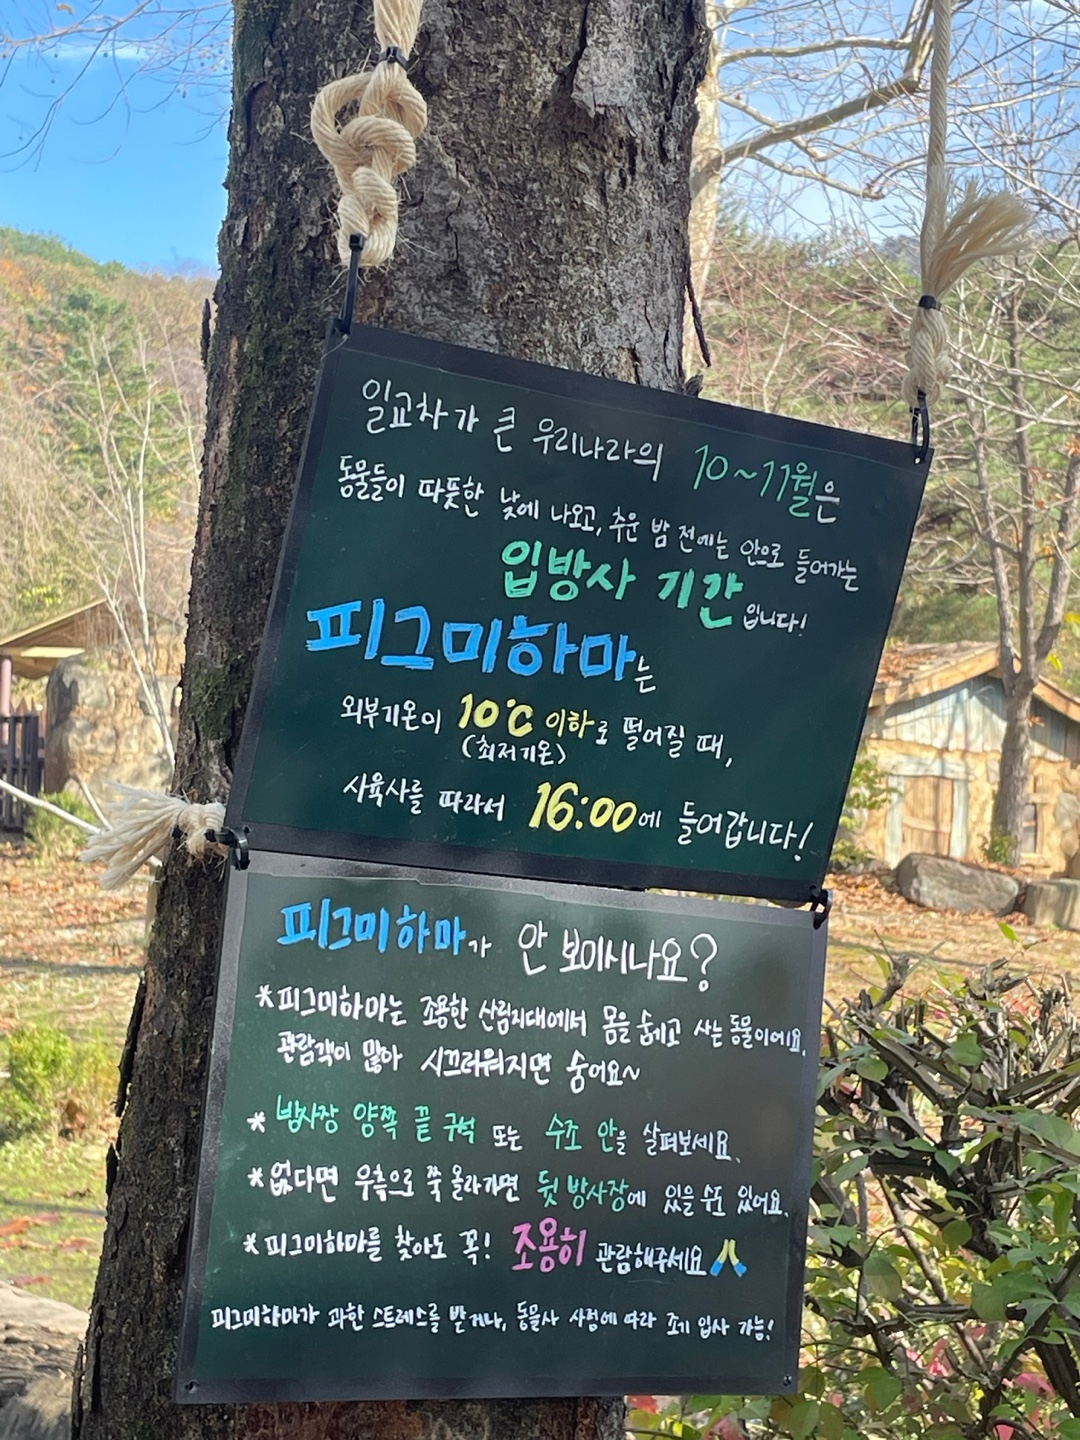 일교차가 큰 우리나라의 10~11월은
동물들이 따뜻한 낮에 나오고, 추운 밤 전에는 안으로 들어가는
입방사 기간입니다!
피그미하마는
외부기온이 10℃ 이하로 떨어질 때,
(최저기온)
사육사를 따라서 16:00에 들어갑니다!
피그미하마가 안 보이시나요?
*피그미하마는 조용한 산림지대에서 몸을 숨기고 사는 동물이에요.
관람객이 많아 시끄러워지면 숨어요~
* 방사장 양쪽 끝 구석 또는 수조 안을 살펴보세요.
*없다면 우측으로 쭉 올라가면 뒷 방사장에 있을 수도 있어요.
*피그미하마를 찾아도 꼭! 조용히 관람해주세요🙏
피그미하마가 과한 스트레스를 받거나, 동물사 사정에 따라 조기 입사 가능!